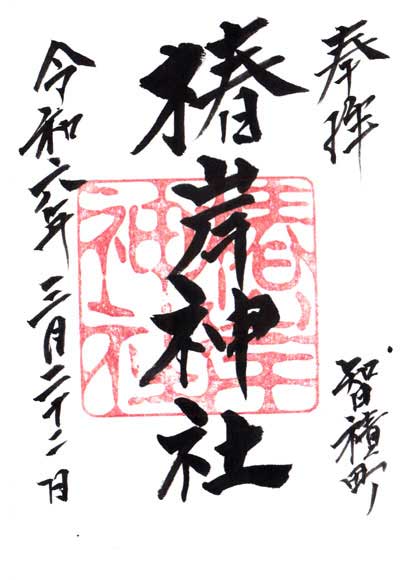 奉拝
智積町
椿岸神社
椿岸神社
令和六年三月二十二日